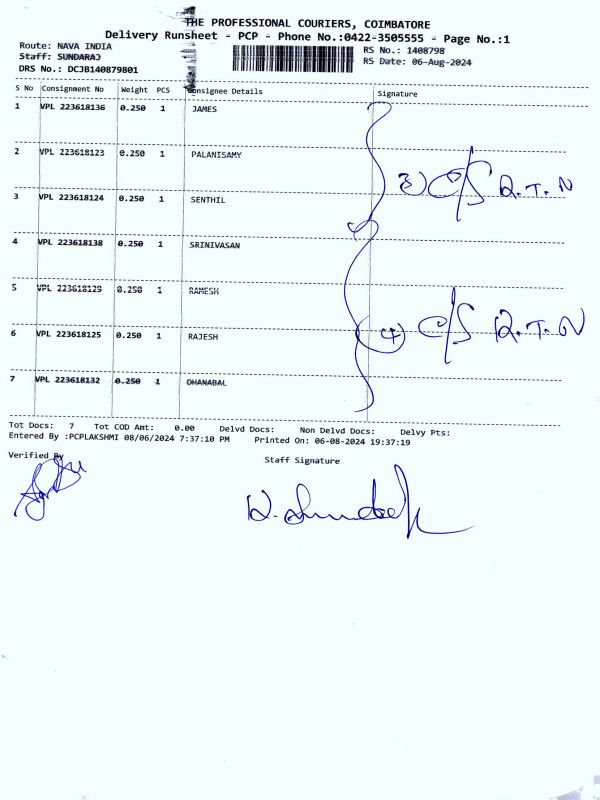 THE PROFESSIONAL COURIERS, COIMBATORE
Delivery Runsheet - PCP - Phone No.:0422-3505555 - Page No.:1
Route: NAVA INDIA
RS No.: 1408798
Staff: SUNDARAJ
RS Date: 06-Aug-2024
DRS No.: DCJB140879801
S No Consignment No Weight PCS Consignee Details Signature
1 VPL 223618136 0.250 1 JAMES
2 VPL 223618123 0.250 1 PALANISAMY
3) C/S R.T.N
3 VPL 223618124 0.250 1 SENTHIL
4 VPL 223618138 0.250 1 SRINIVASAN
5 VPL 223618129 0.250 1 RAMESH
(4) C/S R.T.N
6 VPL 223618125 0.250 1 RAJESH
7 VPL 223618132 0.250 1 DHANABAL
Tot Docs: 7 Tot COD Amt: 0.00 Delvd Docs: Non Delvd Docs: Delvy Pts:
Entered By :PCPLAKSHMI 08/06/2024 7:37:10 PM Printed On: 06-08-2024 19:37:19
Verified By
Staff Signature